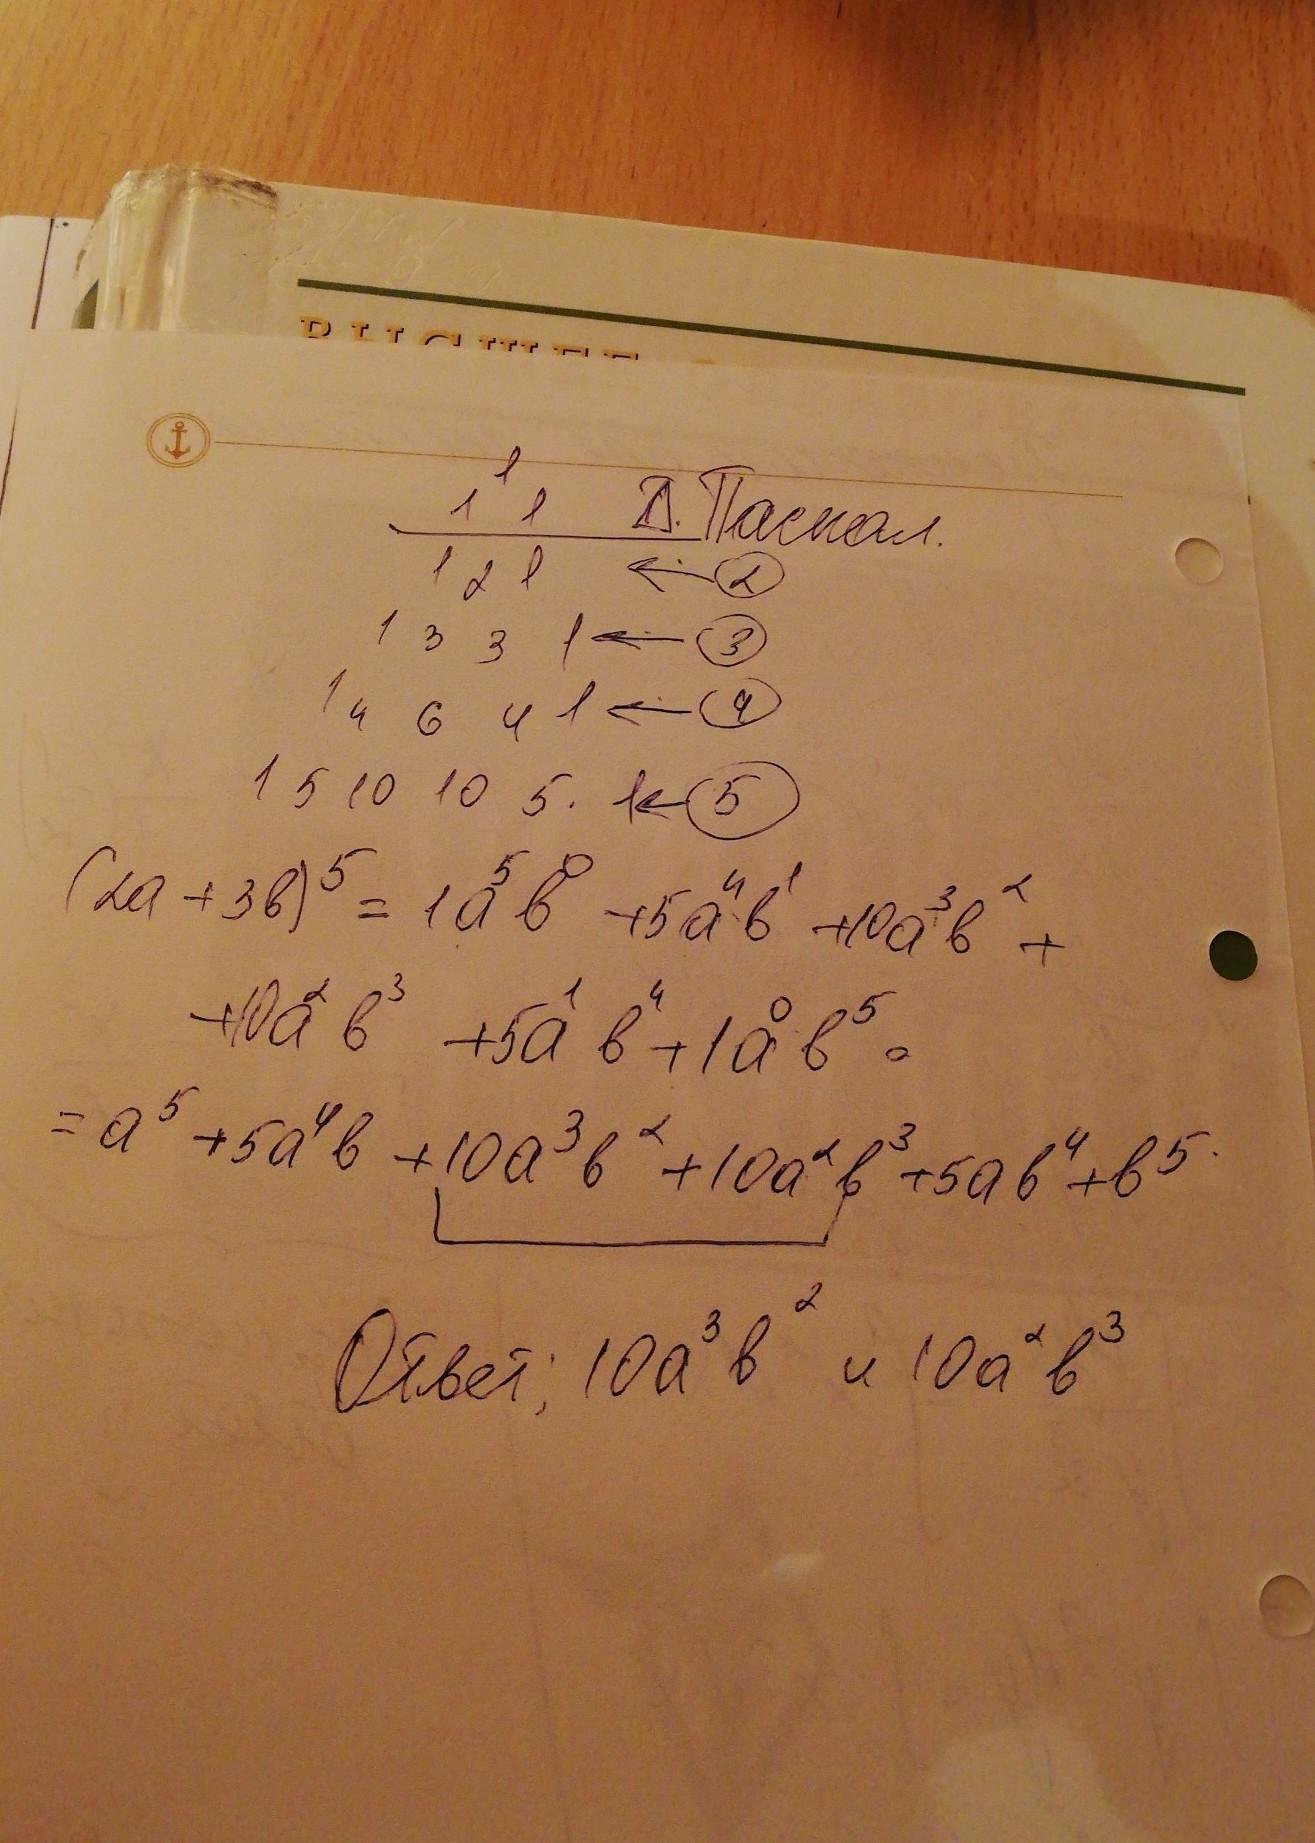 1
1 1 Δ. Паскал.
1 2 1 ← 2
1 3 3 1 ← 3
1 4 6 4 1 ← 4
1 5 10 10 5. 1 ← 5
(2a + 3b)⁵ = 1a⁵b⁰ + 5a⁴b¹ + 10a³b² +
+10a²b³ + 5a¹b⁴ + 1a⁰b⁵ =
= a⁵ + 5a⁴b + 10a³b² + 10a²b³ + 5ab⁴ + b⁵.
Ответ; 10a³b² и 10a²b³